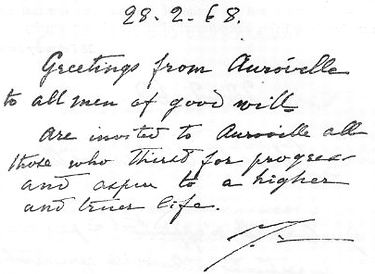 28.2.68.
Greetings from Auroville
to all men of good will
Are invited to Auroville all
those who thirst for progress
and aspire to a higher
and truer life.